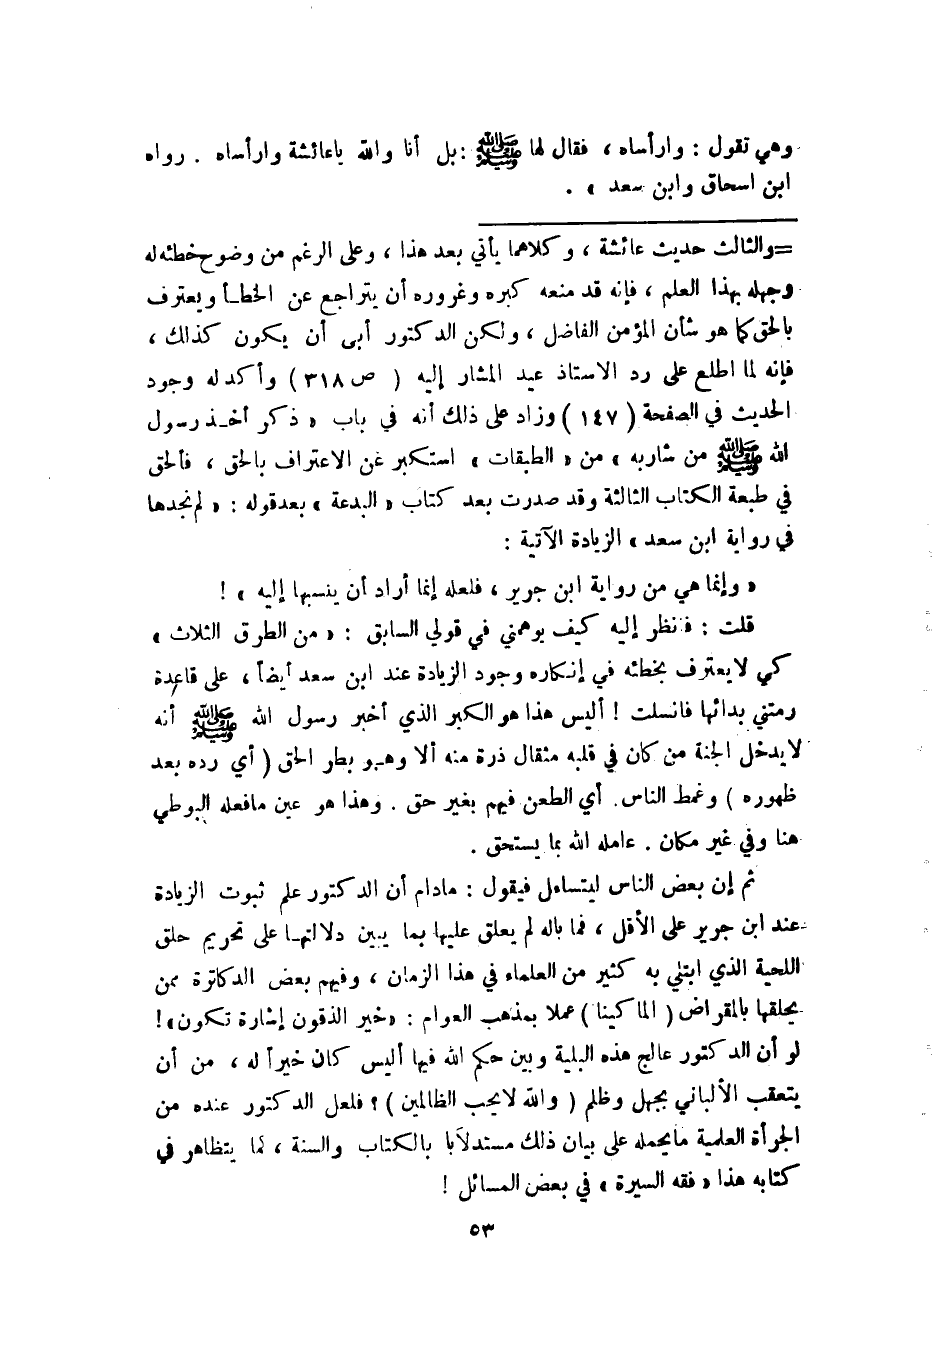 وهي تقول : وارأساه ، فقال لها ﷺ :بل أنا والله ياعائشة وارأساه . رواه
ابن اسحاق وابن سعد » .
=والثالث حديث عائشة ، وكلاهما يأتي بعد هذا ، وعلى الرغم من وضوح خطئه له
وجهله بهذا العلم ، فإنه قد منعه كبره وغروره أن يتراجع عن الخطأ ويعترف
بالحق كما هو شأن المؤمن الفاضل ، ولكن الدكتور أبى أن يكون كذلك ،
فإنه لما اطلع على رد الاستاذ عيد المشار إليه ( ص ٣١٨ ) وأكد له وجود
الحديث في الصفحة ( ١٤٧ ) وزاد على ذلك أنه في باب « ذكر أخـذ رسول
الله ﷺ من شاربه » من « الطبقات » استكبر عن الاعتراف بالحق ، فألحق
في طبعة الكتاب الثالثة وقد صدرت بعد كتاب « البدعة » بعدقوله : « لم نجدها
في رواية ابن سعد » الزيادة الآتية :
« وإنما هي من رواية ابن جرير ، فلعله إنما أراد أن ينسبها إليه » !
قلت : فانظر إليه كيف يوهمني في قولي السابق : « من الطرق الثلاث »
كي لا يعترف بخطئه في إنكاره وجود الزيادة عند ابن سعد أيضاً ، على قاعدة
رمتني بدائها فانسلت ! أليس هذا هو الكبر الذي أخبر رسول الله ﷺ أنه
لا يدخل الجنة من كان في قلبه مثقال ذرة منه ألا وهـو بطر الحق ( أي رده بعد
ظهوره ) وغمط الناس. أي الطعن فيهم بغير حق . وهذا هو عين مافعله البوطي
هنا وفي غير مكان . عامله الله بما يستحق .
ثم إن بعض الناس ليتساءل فيقول : مادام أن الدكتور علم ثبوت الزيادة
عند ابن جرير على الأقل ، فما باله لم يعلق عليها بما يبين دلالتهـا على تحريم حلق
اللحية الذي ابتلي به كثير من العلماء في هذا الزمان ، وفيهم بعض الدكاترة ممن
يحلقها بالمقراض ( الماكينا ) عملا بمذهب العوام : «خير الذقون إشارة تكون»!
لو أن الدكتور عالج هذه البلية وبين حكم الله فيها أليس كان خيراً له ، من أن
يتعقب الألباني بجهل وظلم ( والله لا يحب الظالمين ) ؟ فلعل الدكتور عنده من
الجرأة العلمية مايحمله على بيان ذلك مستدلاً بالكتاب والسنة ، كما يتظاهر في
كتابه هذا « فقه السيرة » في بعض المسائل !
٥٣